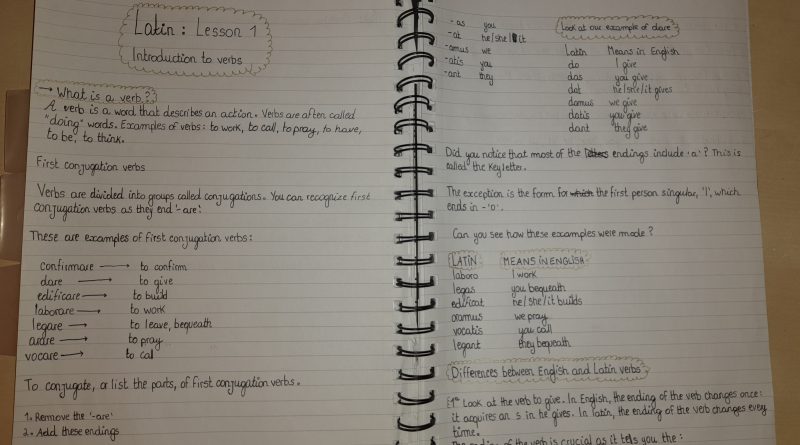 Latin : Lesson 1
Introduction to verbs
→ What is a verb?
A verb is a word that describes an action. Verbs are often called
"doing" words. Examples of verbs: to work, to call, to pray, to have,
to be, to think.
First conjugation verbs
Verbs are divided into groups called conjugations. You can recognize first
conjugation verbs as they end '-are'.
These are examples of first conjugation verbs:
confirmare → to confirm
dare → to give
edificare → to build
laborare → to work
legare → to leave, bequeath
orare → to pray
vocare → to call
To conjugate, or list the parts, of first conjugation verbs.
1. Remove the '-are'
2. Add these endings
-as you
-at he/she/it
-amus we
-atis you
-ant they
Look at our example of dare
Latin Means in English
do I give
das you give
dat he/she/it gives
damus we give
datis you give
dant they give
Did you notice that most of the endings include 'a'? This is
called the key letter.
The exception is the form for which the first person singular, 'I', which
ends in -'o'.
Can you see how these examples were made?
LATIN MEANS IN ENGLISH
laboro I work
legas you bequeath
edificat he/she/it builds
oramus we pray
vocatis you call
legant they bequeath
Differences between English and Latin verbs
Look at the verb to give. In English, the ending of the verb changes once:
it acquires an s in he gives. In latin, the ending of the verb changes every
time.
The ending of the verb is crucial as it tells you the: